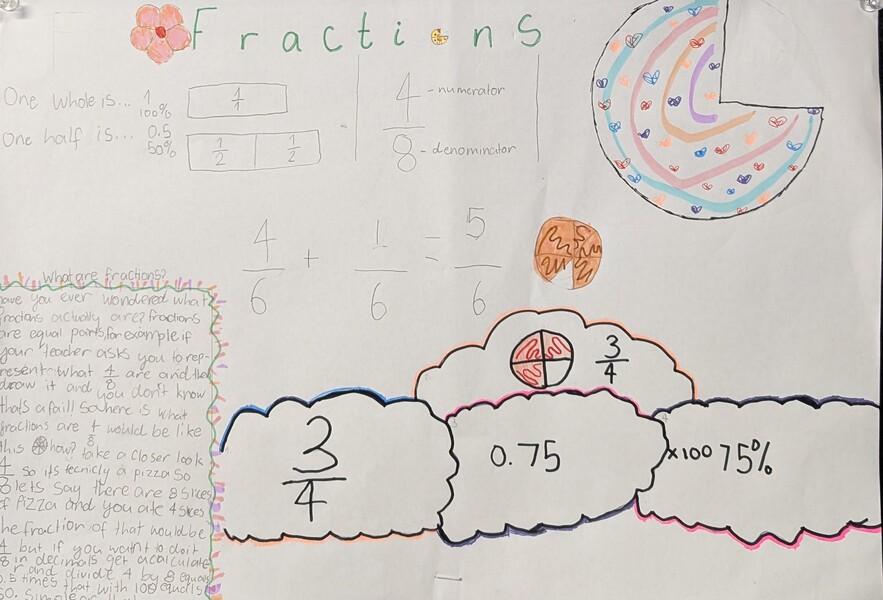 Fractions
One whole is... 1
100%
1/1
One half is... 0.5
50%
1/2 1/2
4 - numerator
8 - denominator
4/6 + 1/6 = 5/6
What are fractions?
have you ever wondered what
fractons actually are? fractions
are equal parts, for example if
your teacher asks you to rep-
resent what 4/8 are and then
draw it and you don't know
thats a fail! So here is what
fractions are 4/8 would be like
this how? take a closer look
4/8 so its tecnicly a pizza so
lets say there are 8 slices
of Pizza and you ate 4 slices
the fraction of that would be
4/8 but if you want to do it
in decimals get a calculate
r and divide 4 by 8 equals
0.5 times that with 100 equals
50.
3/4
3/4
0.75
x100 75%